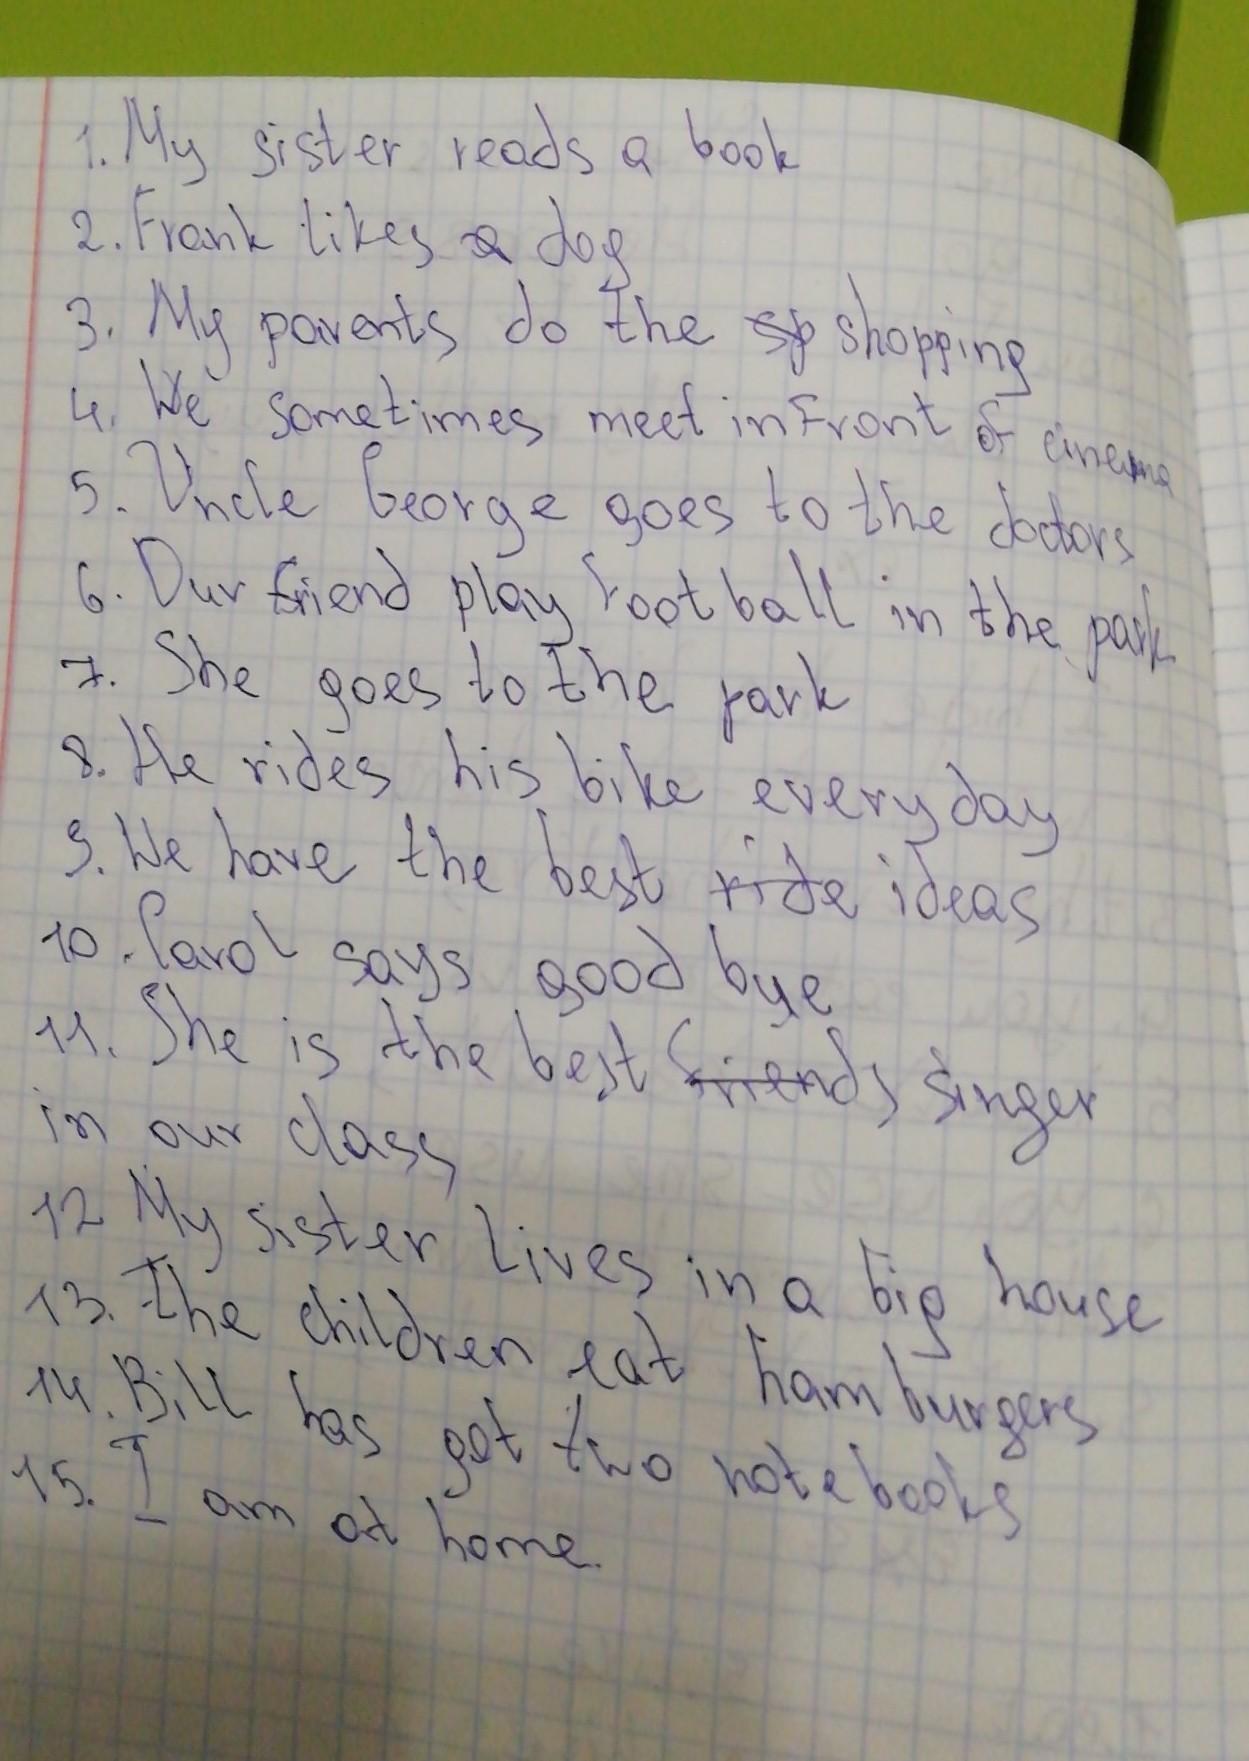 1. My sister reads a book
2. Frank likes a dog
3. My parents do the shopping
4. We sometimes meet infront of cinema
5. Uncle George goes to the doctors
6. Our friend play football in the park
7. She goes to the park
8. He rides his bike every day
9. We have the best ride ideas
10. Carol says good bye
11. She is the best friends singer
in our class
12 My sister lives in a big house
13. The children eat hamburgers
14. Bill has got two notebooks
15. I am at home.